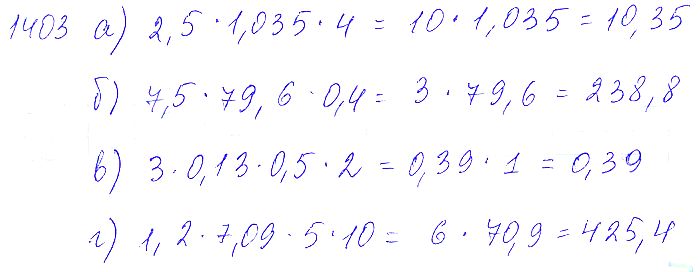 1403 а) 2,5 · 1,035 · 4 = 10 · 1,035 = 10,35
б) 7,5 · 79,6 · 0,4 = 3 · 79,6 = 238,8
в) 3 · 0,13 · 0,5 · 2 = 0,39 · 1 = 0,39
г) 1,2 · 7,09 · 5 · 10 = 6 · 70,9 = 425,4